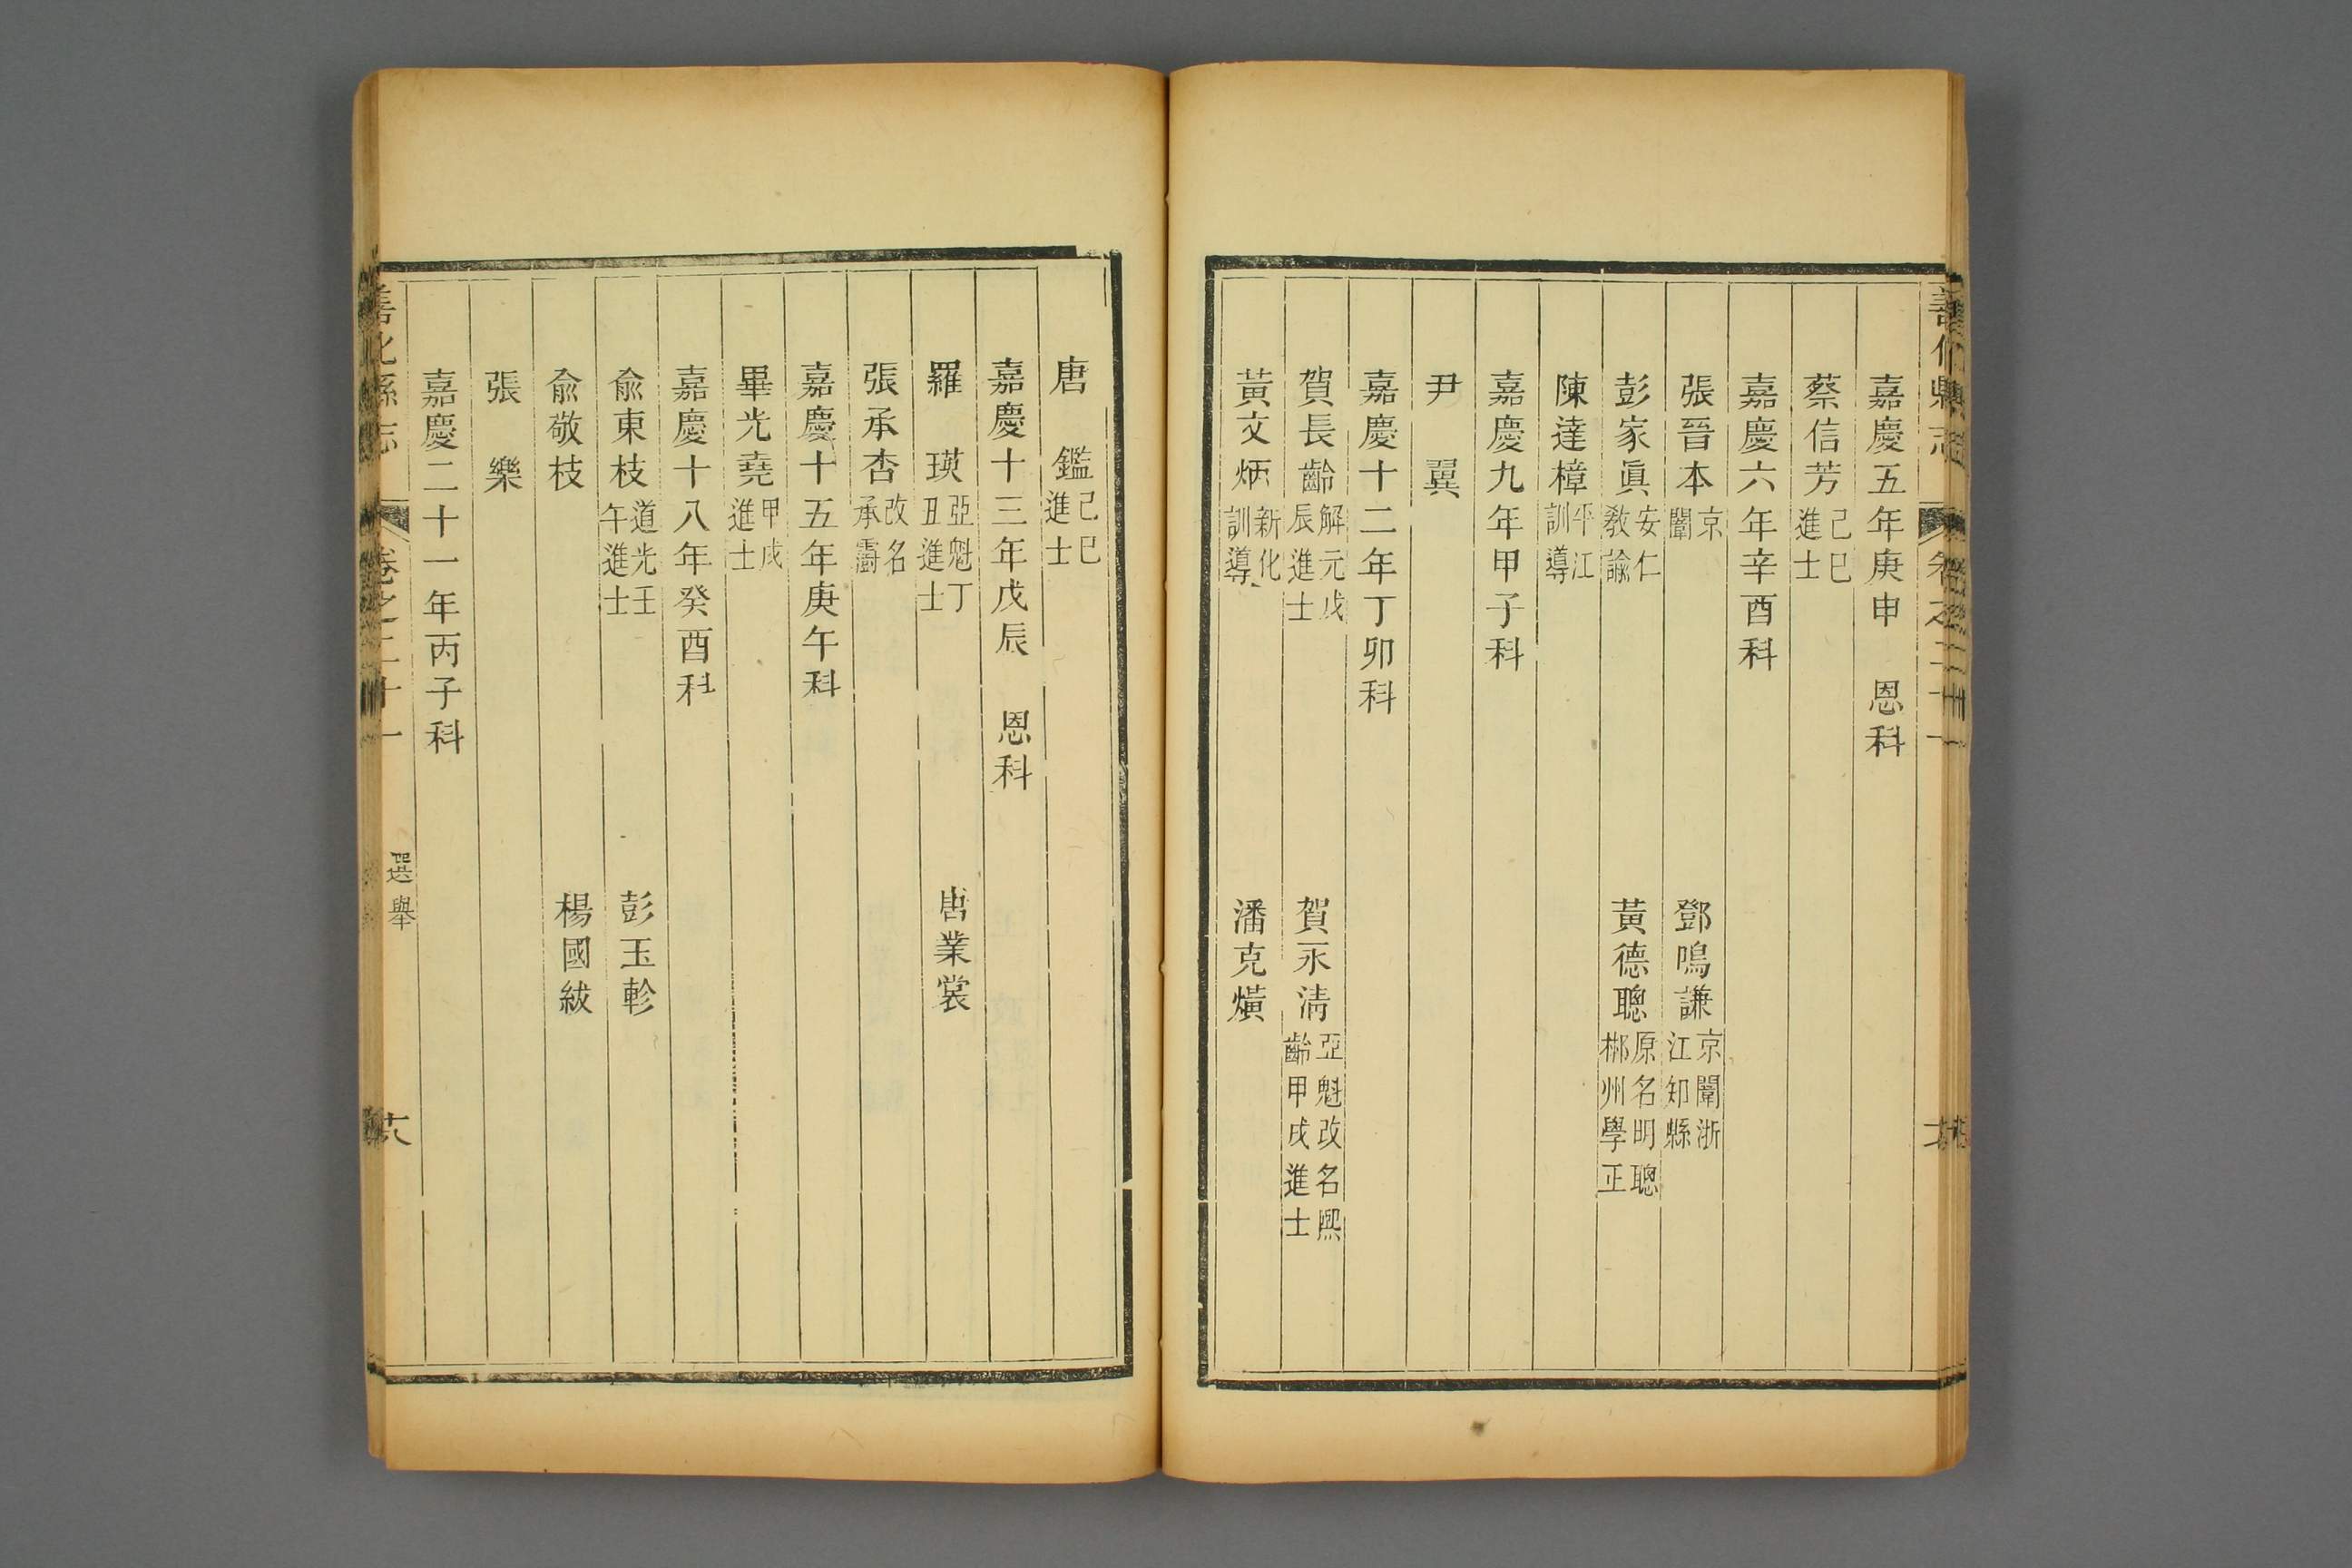 嘉慶五年庚申 恩科
蔡信芳己巳進士
嘉慶六年辛酉科
張晉本京闈 鄧鳴謙京闈浙江知縣
彭家眞安仁敎諭 黃德聰原名明聰郴州學正
陳達樟平江訓導
嘉慶九年甲子科
尹 翼
嘉慶十二年丁卯科
賀長齡解元戊辰進士 賀永淸亞魁改名熙齡甲戌進士
黃文炳新化訓導 潘克爌
唐 鑑己巳進士
嘉慶十三年戊辰 恩科
羅 瑛亞魁丁丑進士 唐業裳
張承杏改名承霨
嘉慶十五年庚午科
畢光堯甲戌進士
嘉慶十八年癸酉科
兪東枝道光壬午進士 彭玉軫
兪敬枝 楊國紱
張 樂
嘉慶二十一年丙子科
善化縣志 卷之二十一 選舉 十八